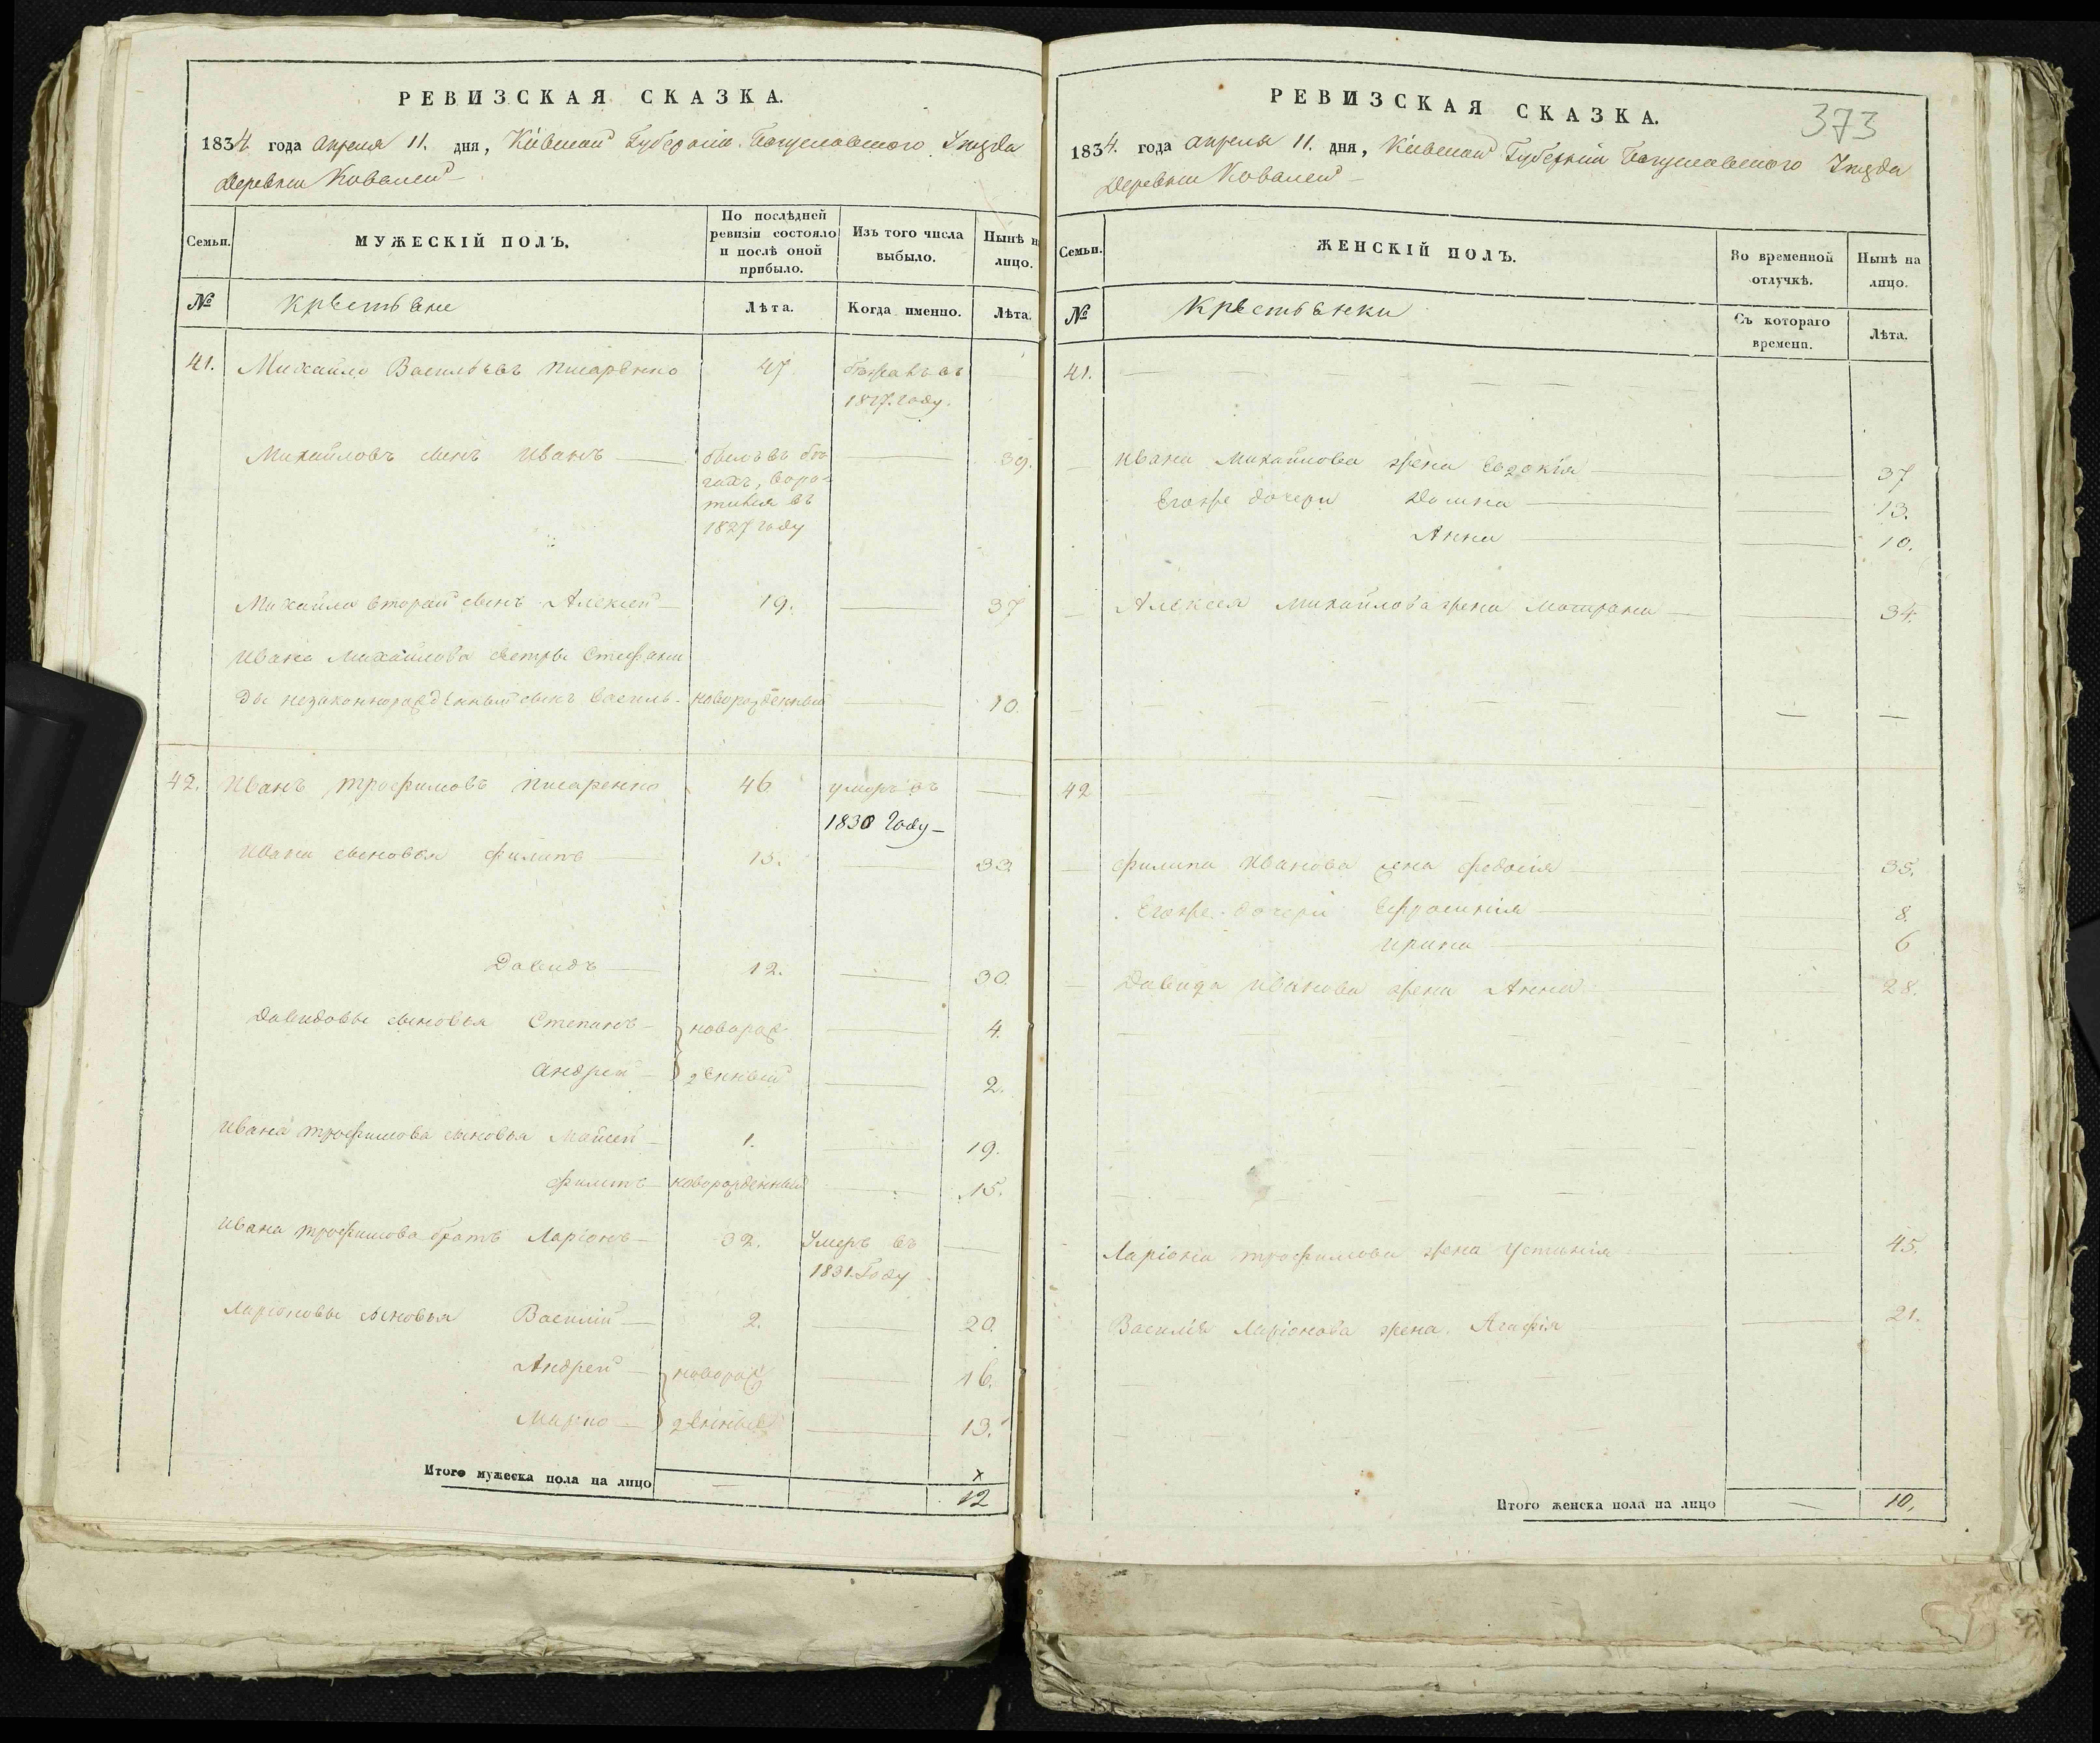 РЕВИЗСКАЯ СКАЗКА.
1834. года апреля 11. дня, Кіевской Губерніи Богуславского Уезда
Деревни Ковалей
Семьи.
МУЖЕСКІЙ ПОЛЪ.
По послѣдней ревизіи состояло и послѣ оной прибыло.
Изъ того числа выбыло.
Нынѣ на лицо.
№
крестьяне
Лѣта.
Когда именно.
Лѣта.
41. Михайло Васильевъ Писаренко 47 бежавъ въ —
1827. году.
Михайловъ сынъ Иванъ — былъ въ бѣ — 39.
гахъ, воро-
тился въ
1827 году
Михайла второй сынъ Алексей — 19. — 37
Ивана Михайлова сестры Стефани
ды незаконнорожденный сынъ Василь - новорожденный — 10.
42. Иванъ Трофимовъ Писаренко 46 умеръ въ —
1830 году —
Ивана сыновья Филипъ — 15. — 33
Давидъ — 12. — 30.
Давидовы сыновья Степанъ — новорож — 4.
Андрей — денный — 2.
Ивана Трофимова сыновья Мойсей — 1. — 19.
Филипъ — новорожденный — 15.
Ивана Трофимова братъ Ларіонъ — 32. Умеръ въ —
1831. Году
Ларіоновы сыновья Василій — 2. — 20.
Андрей — новорож — 16.
Марко — денные — 13.
Итого мужеска пола на лицо — 12
РЕВИЗСКАЯ СКАЗКА.
373
1834. года апреля 11. дня, Кіевской Губерніи Богуславского Уезда
Деревни Ковалей —
Семьи.
ЖЕНСКІЙ ПОЛЪ.
Во временной отлучкѣ.
Нынѣ на лицо.
№
Крестьянки
Съ котораго времени.
Лѣта.
41.
Ивана Михайлова жена Евдокія — — 37
Егожъ дочери Домна — — 13.
Анна — — 10.
Алексея Михайлова жена Мотрона — — 34.
42
Филипа Иванова жена Федосія — — 35.
Егоже дочери Ефросинія — — 8.
Ирина — — 6
Давида Иванова жена Анна — — 28.
Ларіона Трофимова жена Устинія — — 45.
Василія Ларіонова жена Агафія — — 21.
Итого женска пола на лицо — 10.